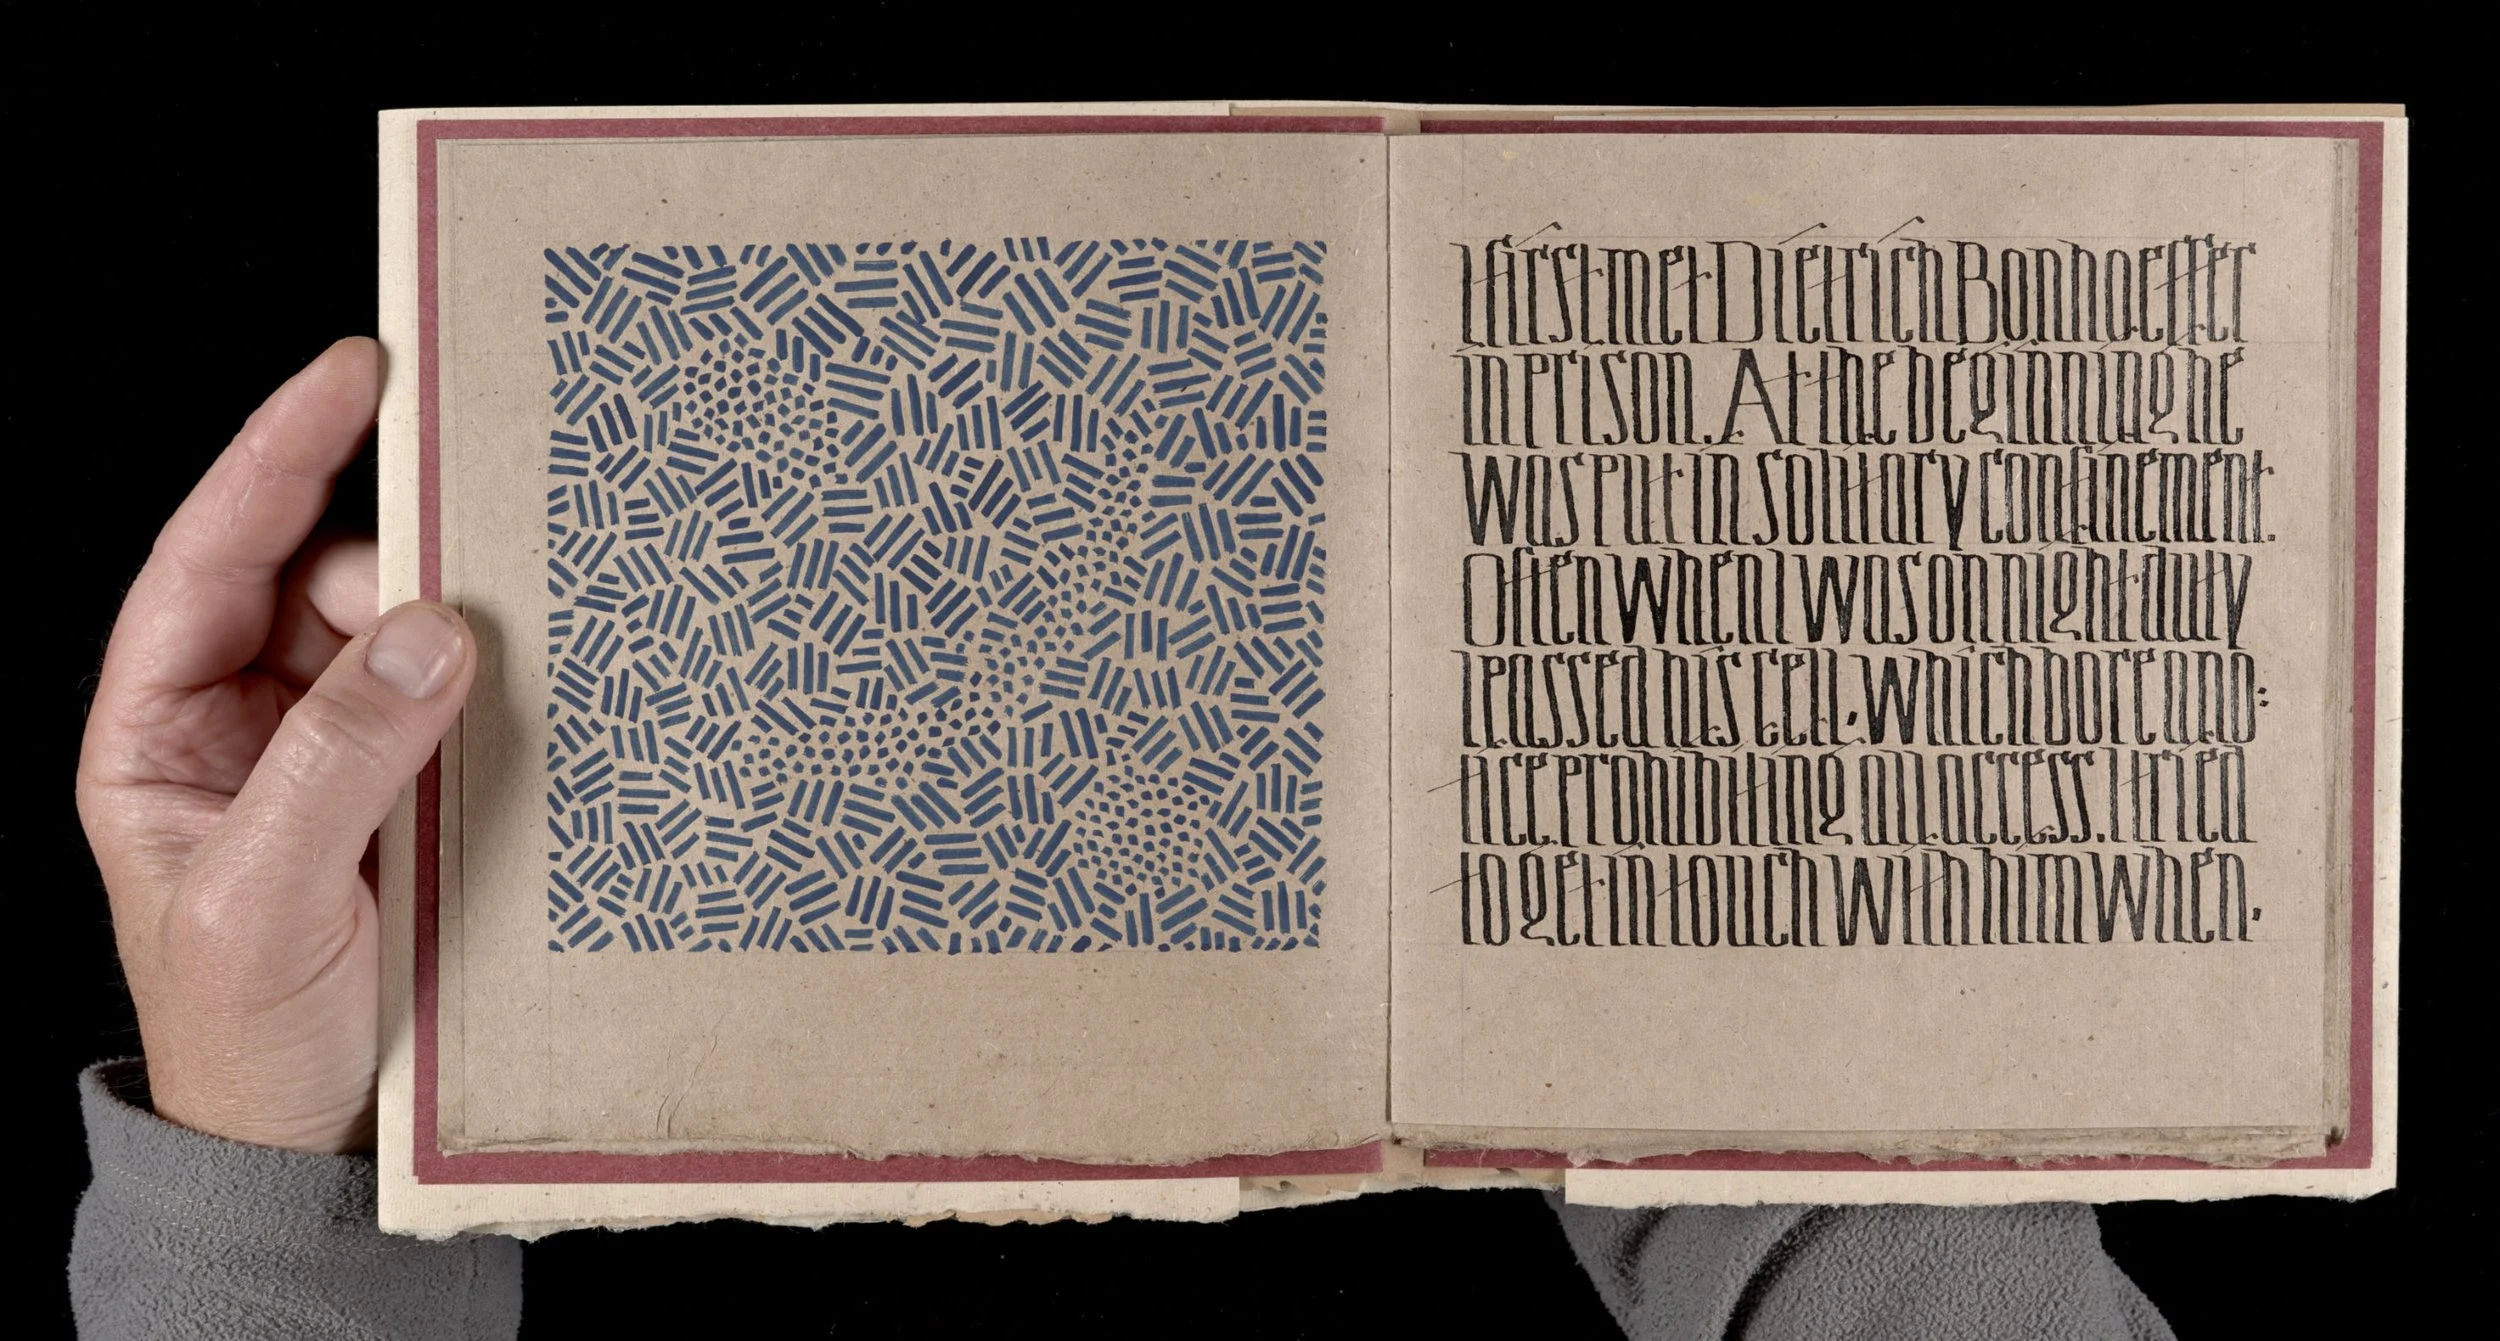 I first met Dietrich Bonhoeffer
in prison. At the beginning he
was put in solitary confinement.
Often when I was on night duty
I passed his cell, which bore a no:
tice prohibiting all access. I tried
to get in touch with him when,